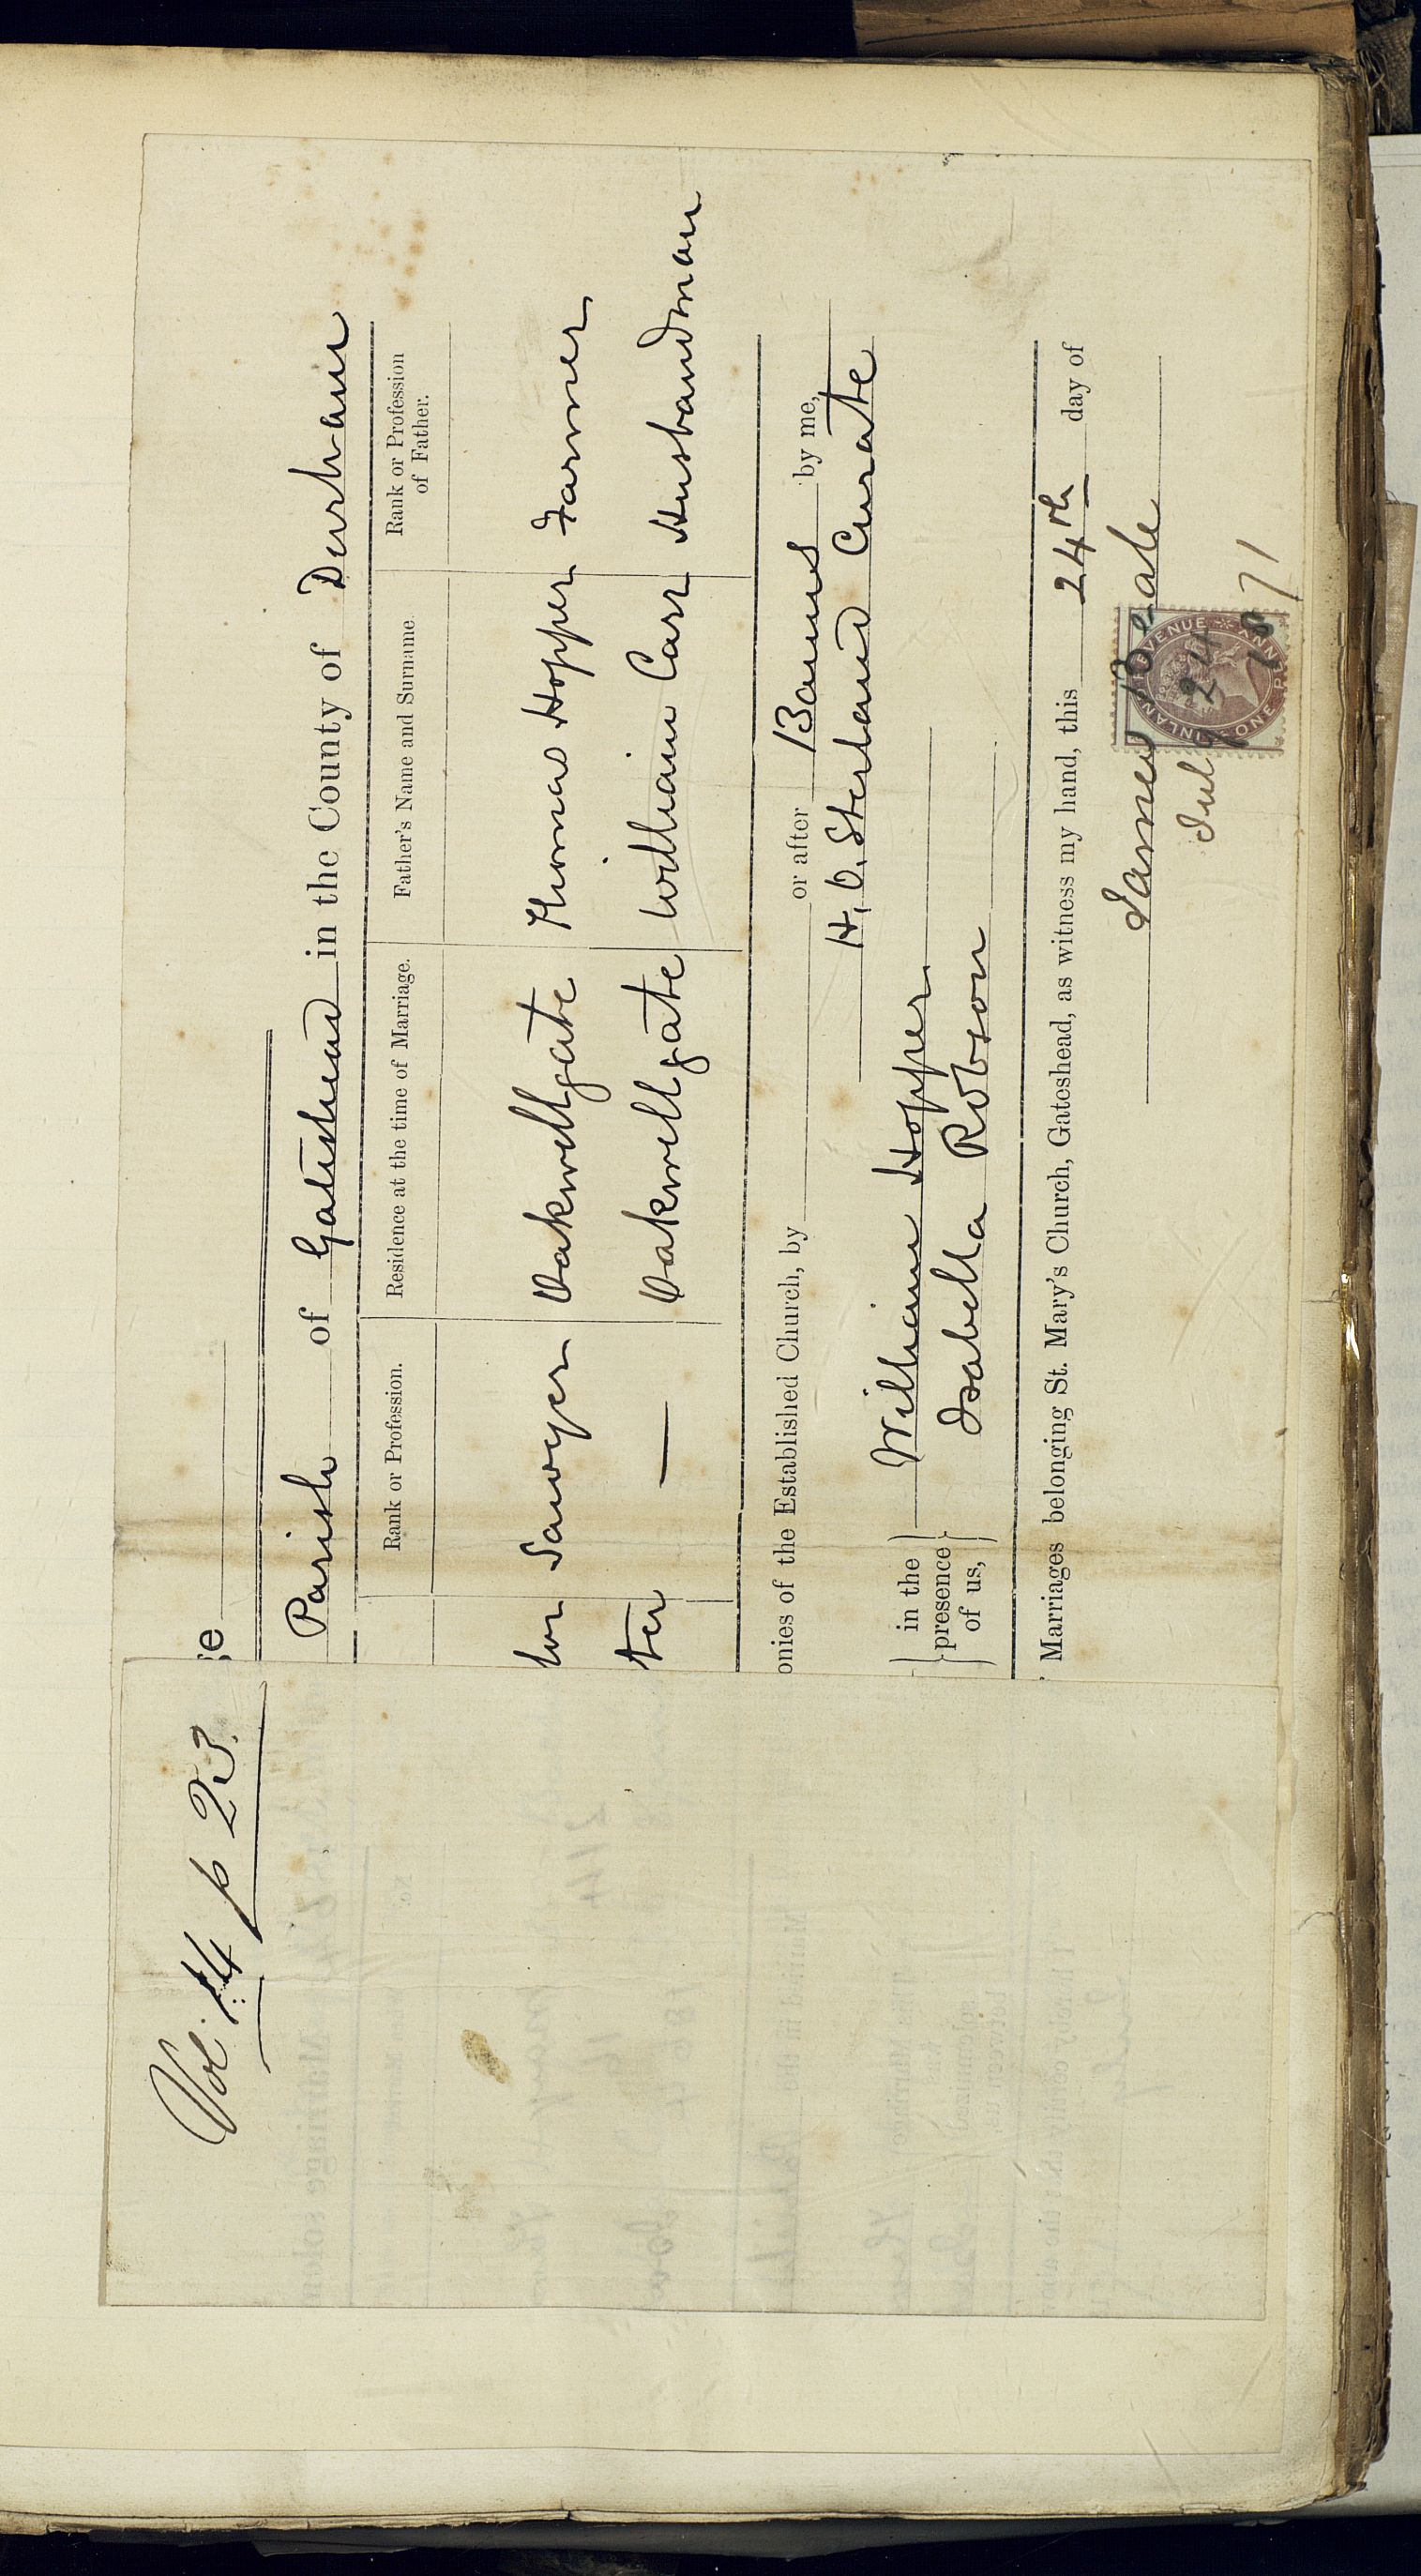 Vol. 14 p 23.
ge
Parish of Gateshead in the County of Durham
Rank or Profession. Residence at the time of Marriage. Father's Name and Surname. Rank or Profession of Father.
lor Sawyer Oakwellgate Thomas Hopper Farmer
ter — Oakwellgate William Carr Husbandman
onies of the Established Church, by or after Banns by me,
H. O. Sterland Curate
in the presence of us,
William Hopper
Isabella Robson
Marriages belonging St. Mary's Church, Gateshead, as witness my hand, this 24th day of
James Beale
July 24 1871
INLAND REVENUE ONE PE